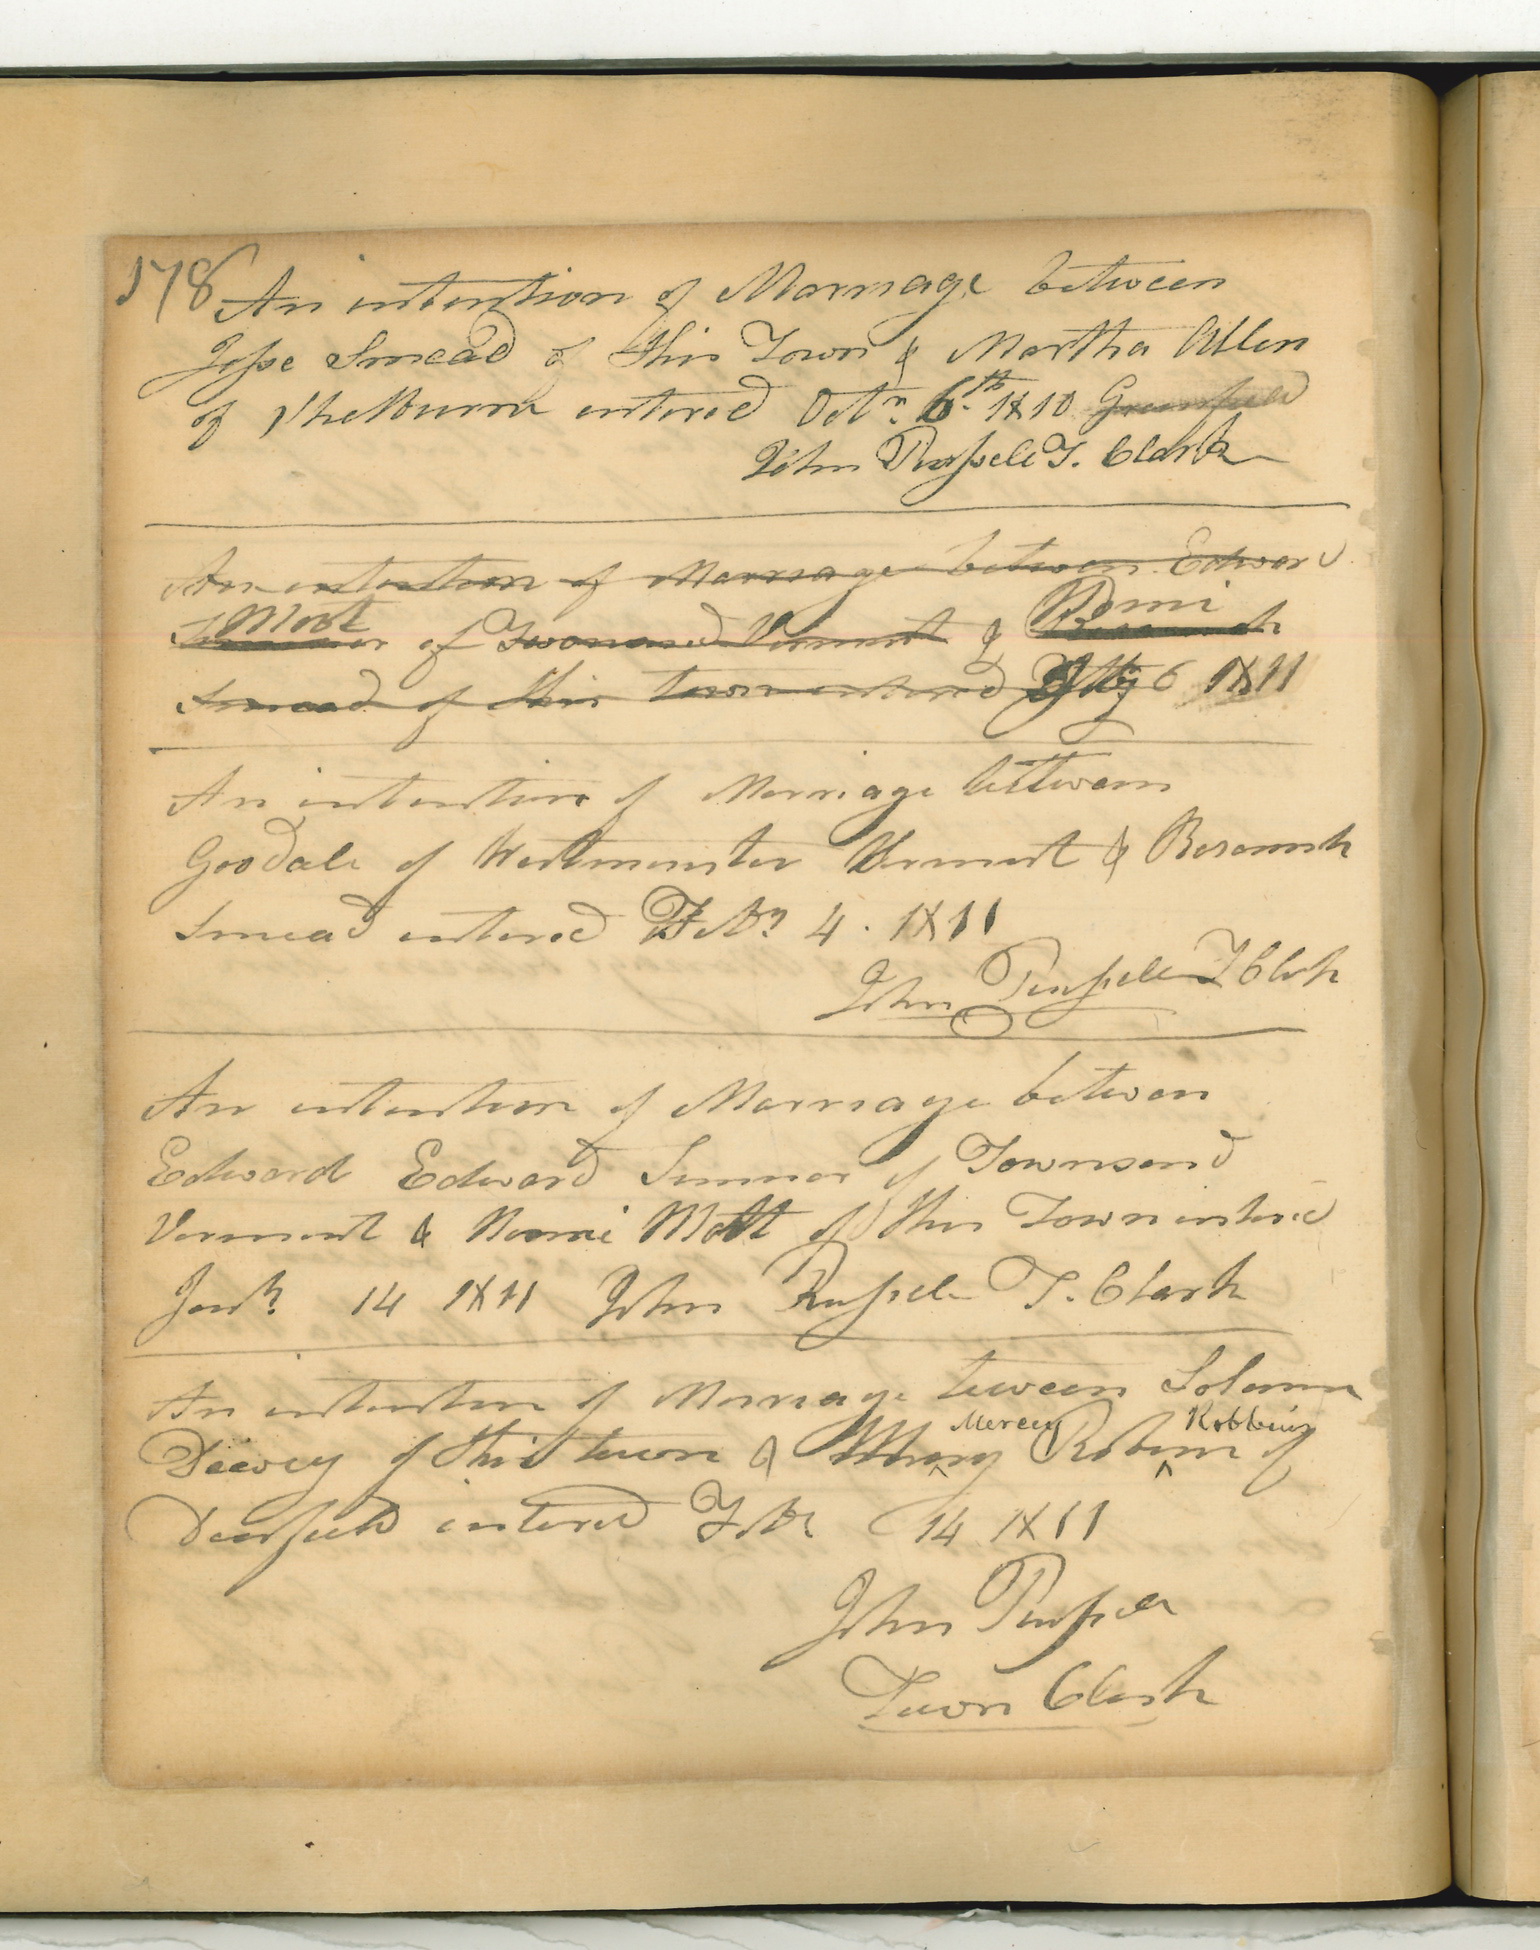 178
An intention of Marriage between
Jesse Smead of this Town & Martha Allen
of Shelburn entered Octr. 6.th 1810 Greenfield
John Russell T. Clark
An intention of Marriage between Edward
Mott
of Townsend Vermont &
Smead of this town entered 6 1811
An intention of Marriage bettween
Goodale of Westminster Vermont &
Smead entered Febr 4. 1811
John Russell T Clark
An intention of Marriage betwen
Edward Edward Sumner of Townsend
Vermont & Naomi Mott of this Town entered
Janr 14 1811 John Russell T. Clark
An intention of Marriage tween Solomon
Mercy Robbins
Deewey of this town & Mary Robins of
Deerfield entered Febr 14 1811
John Russell
Town Clark